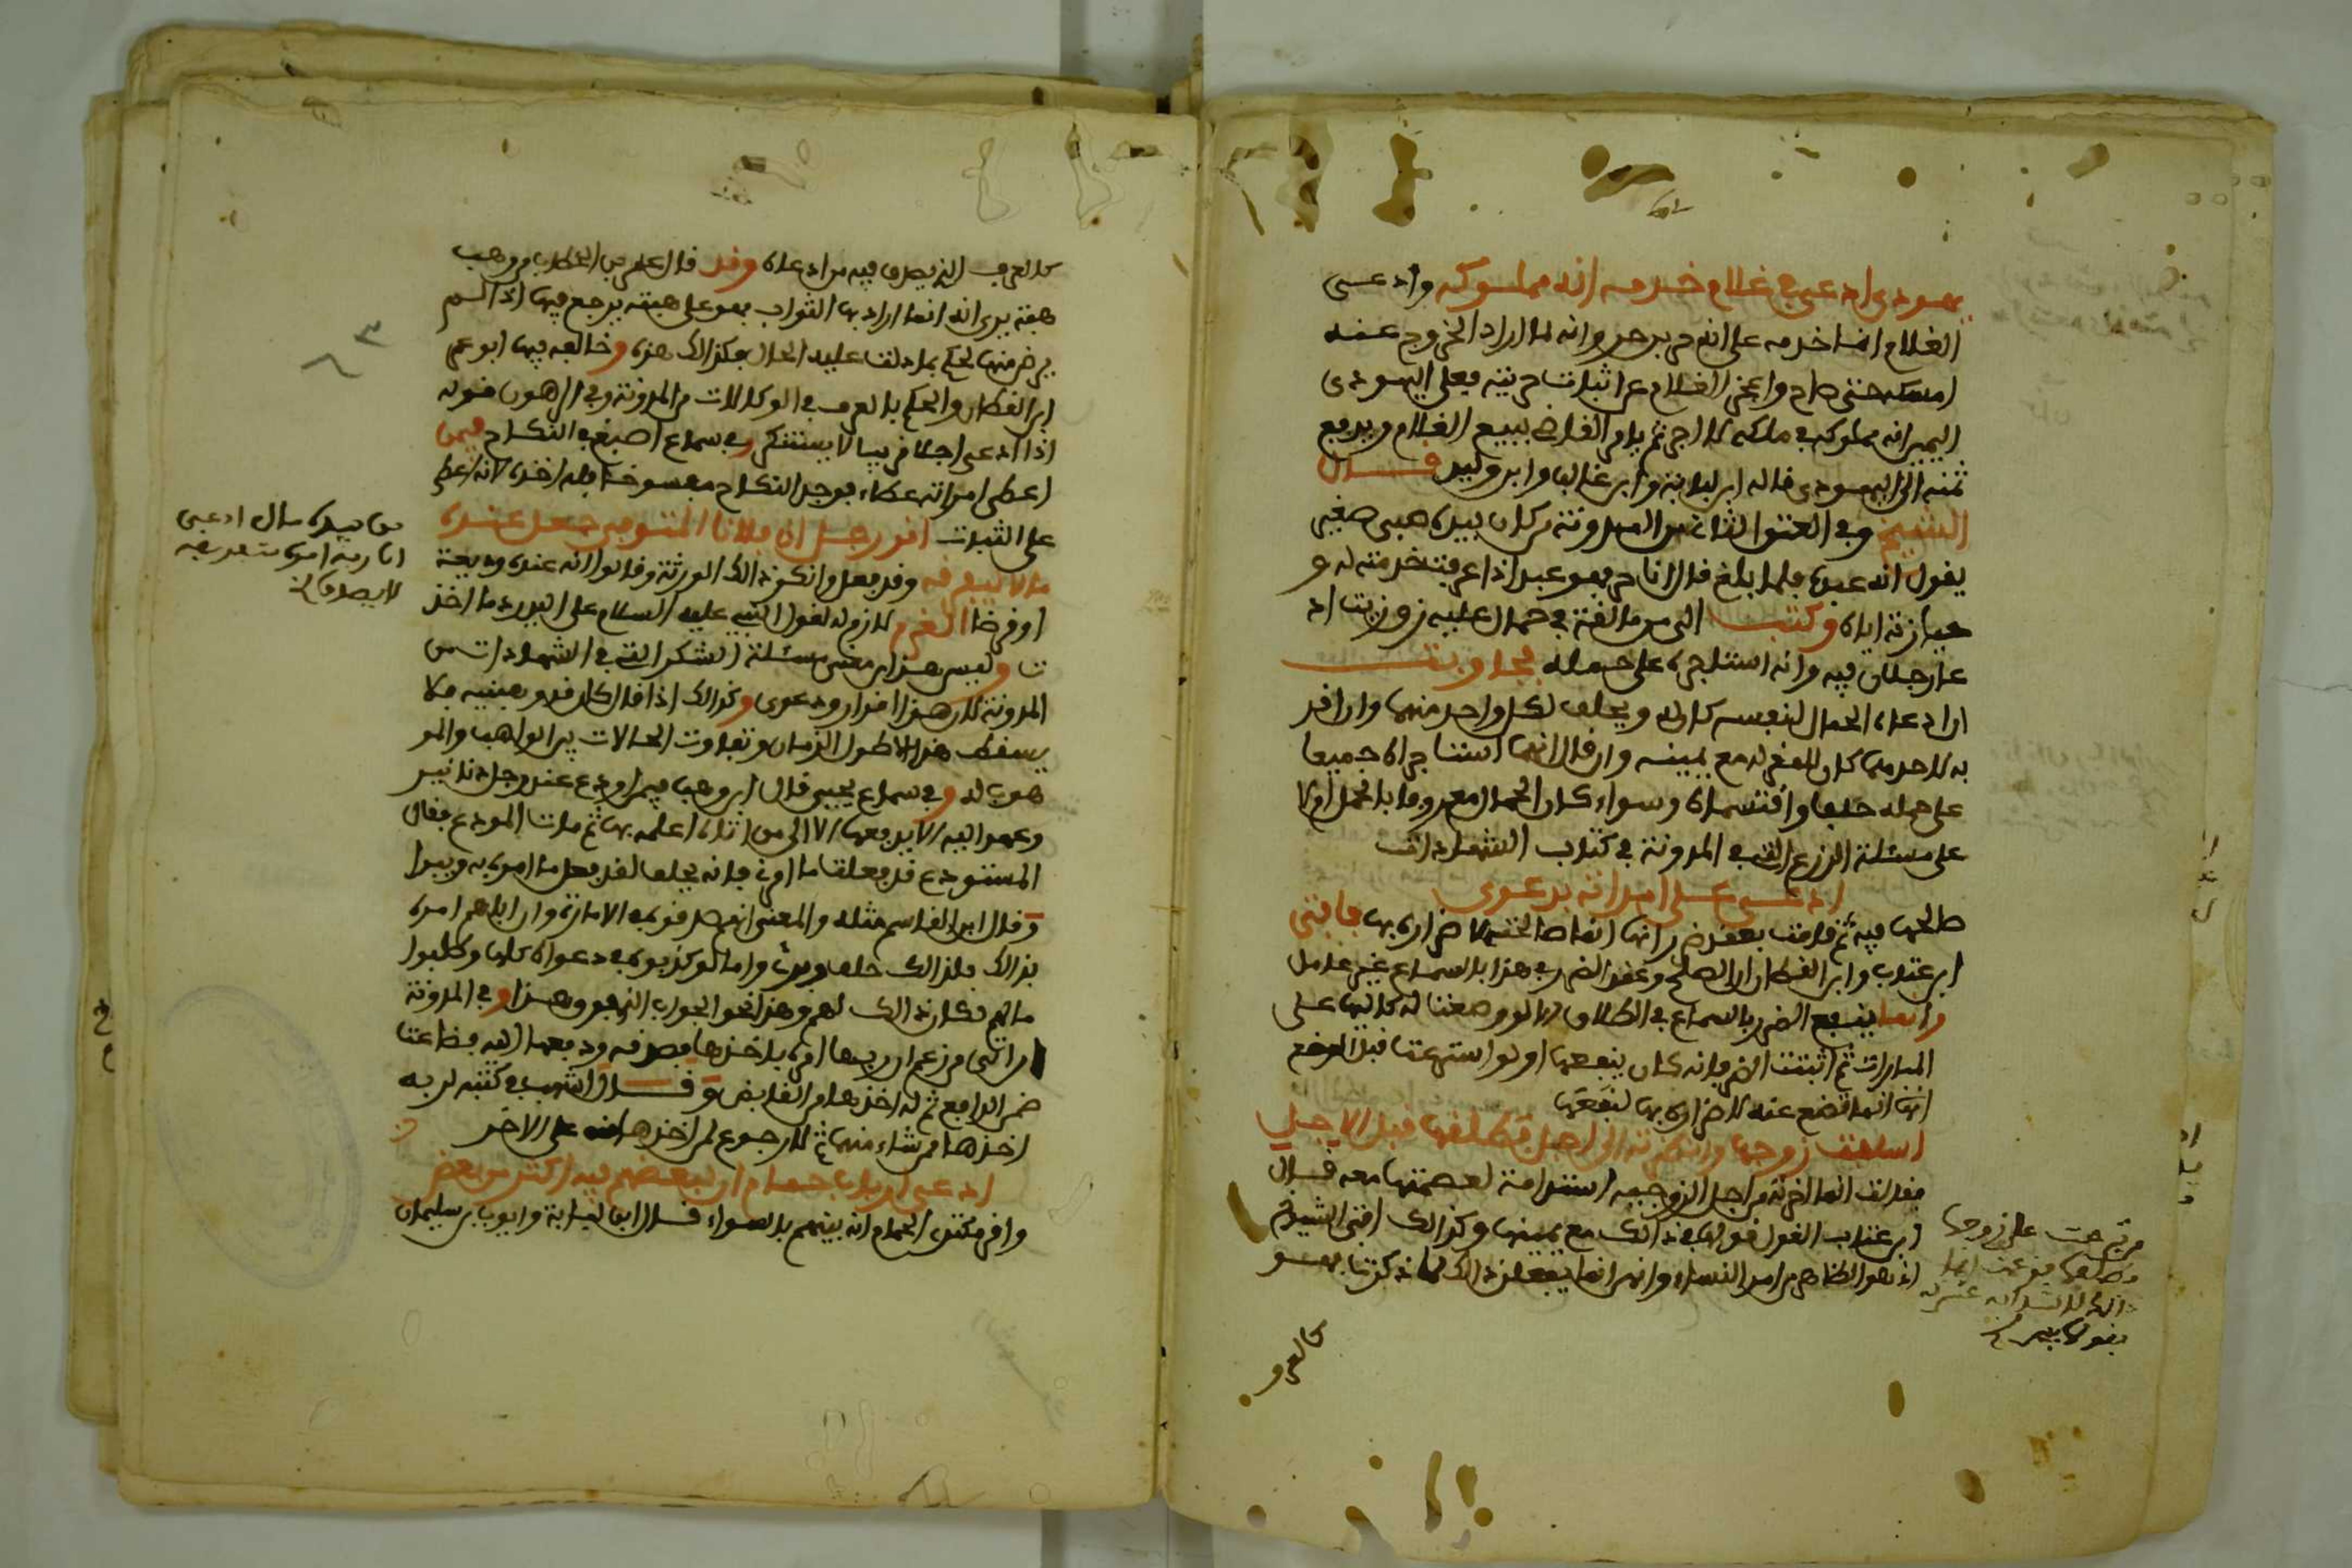 يهودي ادعى في غلام خدمه انه مملوكه وادعى
الغلام انما خدمه على انه حر بن حر وانه لما اراد الخروج عنه
امسكه حتى صاح وعجز الغلام عن اثبات حريته فعلى اليهودي
اليمين انه مملوكه في ملكه لا اجر ثم يامر القاضي ببيع الغلام ويدفع
ثمنه الى اليهودي قاله ابن لبابة وابن غالب وابن وليد قال
الشيخ وفي العتق الثاني من المدونة من كان بيده صبي صغير
يقول انه عبده فلما بلغ قال انا حر فهو عبد اذا عرفت خدمته له و
حيازته اياه وكتب الي من مالقة في حمال عليه زق زيت اد
عاه رجلان فيه وانه استاجره على حمله فجاوبت
ان ادعاه الحمال لنفسه كان له ويحلف لكل واحد منهما وان اقر
به لاحدهما كان للمقر له مع يمينه وان قال انهما استاجراه جميعا
على حمله حلفا واقتسماه وسواء كان الحمال معروفا بالحمل او لا
على مسئلة الزرع التي في المدونة في كتاب الشهادات
ادعى على امراته بدعوى
صالحها فيه ثم قامت بعقد ضرر انها انما صالحته لاضراره بها فافتى
ابن عتاب وابن القطان ان الصلح وعقد الضرر في هذا بالسماع غير عامل
وانما ينفع الضرر بالسماع في الطلاق كما لو وضعت له كاليها على
المبارات ثم اثبتت الضرر فانه كان ينفعها او لو استرعت قبل الوضع
انها انما تضع عنه لاضراره بها لنفعها
اسلفت زوجها وانظرته الى اجل فطلقها قبل الاجل
فقالت انما اخرته من اجل الزوجية استدامة لعصمتها معه قال
ابن عتاب القول قولها في ذالك مع يمينها وكذالك افتى الشيوخ
اذ هو الظاهر من امر النساء وانهن انما يفعلن ذالك لما ذكرت فهو
كالعرف
على زوجها
كالعرف الذي يصدق فيه من ادعاه وقد قال عمر بن الخطاب من وهب
هبة يرى انه انما اراد بها الثواب فهو على هبته يرجع فيها اذا لم
يرض منها لحكم بما دلت عليه الحال فكذالك هذه وخالفه فيها ابو عمر
ابن القطان والحكم بالعرف في الوكالات من المدونة وفي الرهون قوله
اذا ادعى اجلا قريبا لا يستنكر وفي سماع اصبغ في النكاح فيمن
اعطى امراته عطاء فوجد النكاح مفسوخا فله اخذه لانه اعطى
على الثبات اقر رجل ان فلانا المتوفى جعل عنده
مالا ليفرقه وقد فعل وانكر ذالك الورثة وقالوا انه عنده وديعة
او قرضا الغرم لازم له لقول النبي عليه السلام على اليد رد ما اخذ
ت وليس هذا من معنى مسئلة الشكر التي في الشهادات من
المدونة لان هذا اقرار ودعوى وكذالك اذا قال كان قد وهبنيه فلا
يسقط هذا الا طول الزمان وتفاوت الحالات بين الواهب والمو
هوب له وفي سماع يحيى قال ابن وهب فيمن اودع عند رجل دنانير
وعهد اليه الا يدفعها الا الى من اتاه اعلمه بها ثم مات المودع فقال
المستودع قد فعلت ما امرني فانه يحلف لقد فعل ما امره به ويبرا
وقال ابن القاسم مثله والمعنى انه يصدقونه في الامانة وان اياهم امره
بذالك فلذالك حلف وبرئ واما لو كذبوه في دعواه كلها وطلبوا
مالهم فكان ذالك لهم وهذا نحو الجواب الذي هو هذا وفي المدونة
ومن اتى من زعم ان ربها امره باخذها فصدقه ودفعها اليه فضاعت
ضمن الدافع ثم له اخذها من القابض وقال اشهب في كتبه لربه
اخذها ممن شاء منهما ثم لا رجوع لمن اخذها منه على الاخر
ادعى ارباب حمام ان لبعضهم فيه اكثر من بعض
واقر مكتري الحمام انه بينهم بالسواء قال ابن لبابة وايوب بن سليمان
من بيده مال ادعى
ان ربه امره بتفريقه
لا يصدق